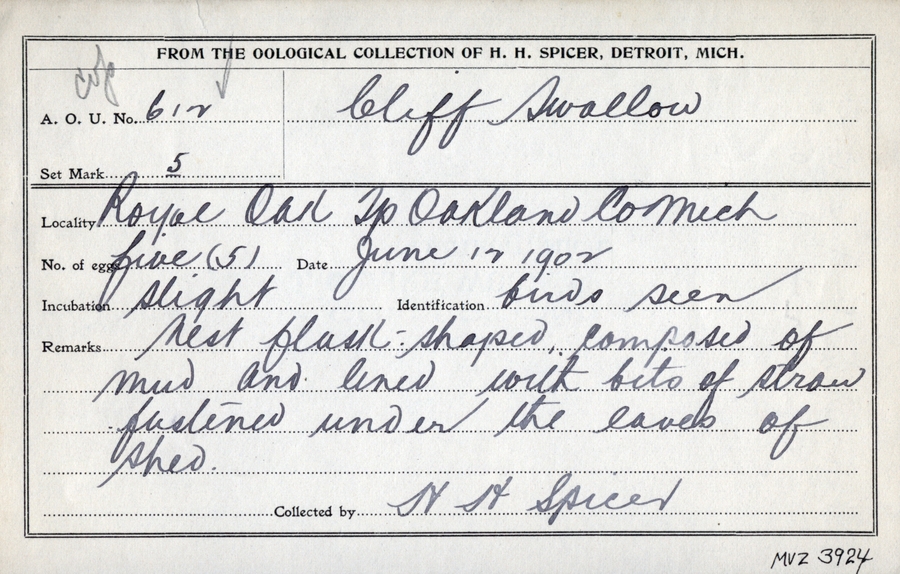 FROM THE OOLOGICAL COLLECTION OF H. H. SPICER, DETROIT, MICH.
A. O. U. No. 612 Cliff Swallow
Set Mark 5
Locality Royal Oak Tp Oakland Co Mich
No. of eggs five (5) Date June 12 1902
Incubation slight Identification birds seen
Remarks Nest flask-shaped, composed of
mud and lined with bits of straw
fastened under the eaves of
shed.
Collected by H H Spicer
MVZ 3924